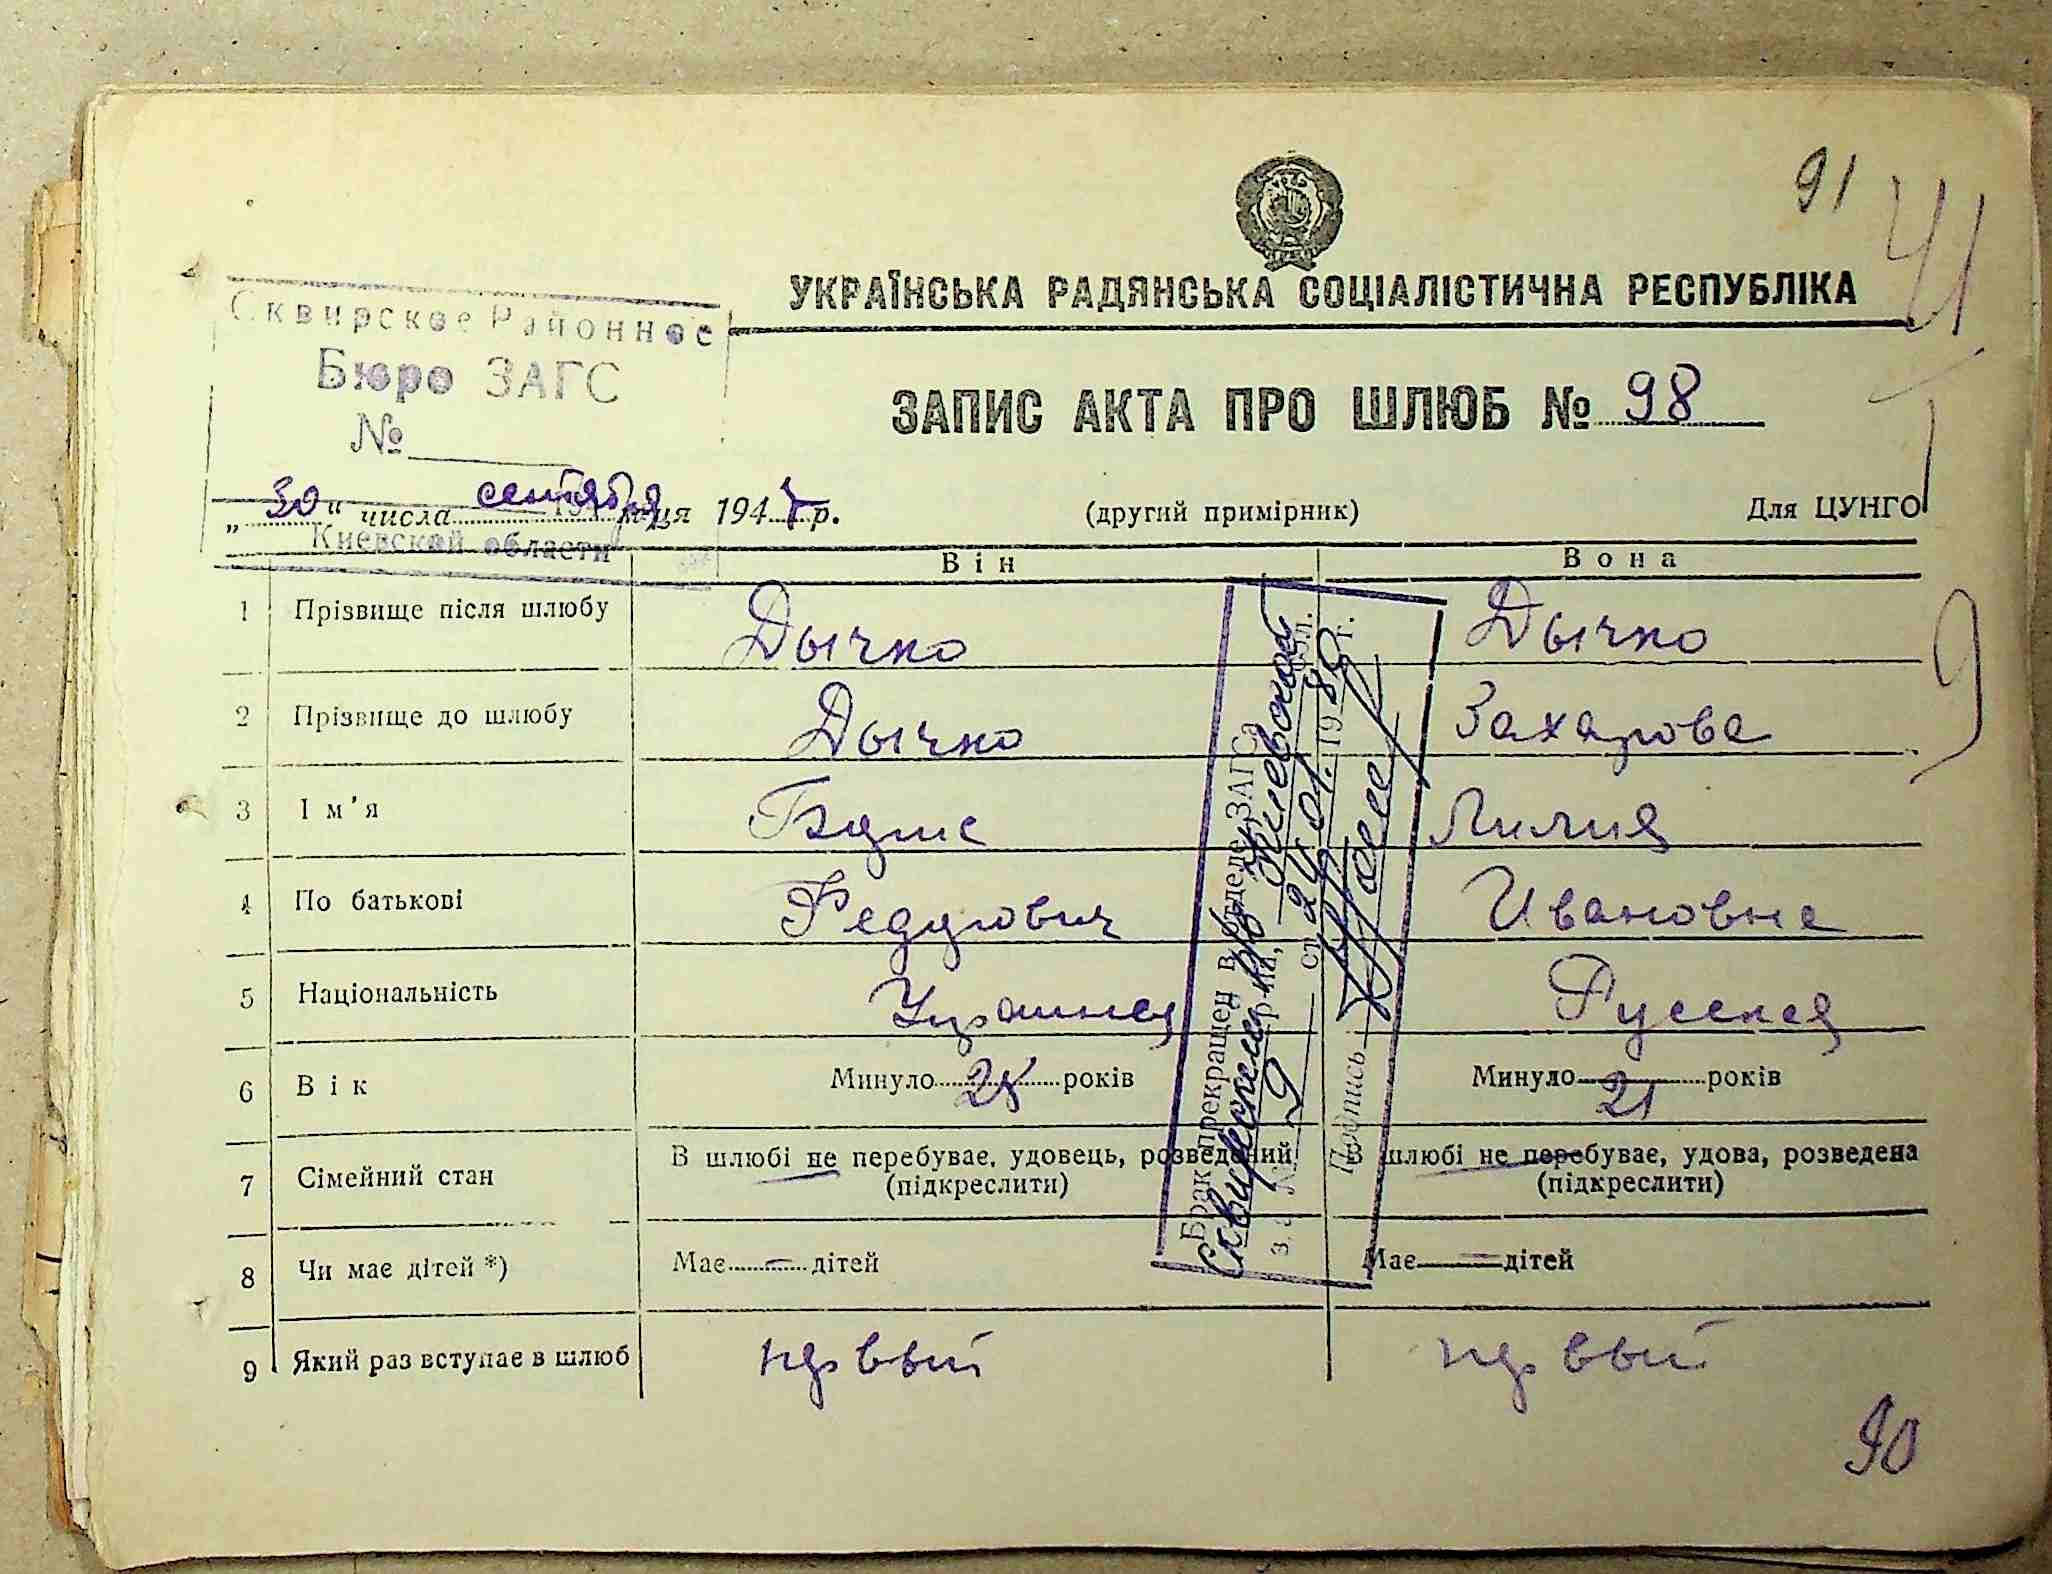 91
41
УКРАЇНСЬКА РАДЯНСЬКА СОЦІАЛІСТИЧНА РЕСПУБЛІКА
Сквирское Районное
Бюро ЗАГС
№
Киевской области
ЗАПИС АКТА ПРО ШЛЮБ № 98
„30“ числа сентября м-ця 1947 р. (другий примірник) Для ЦУНГО
Він Вона
1 Прізвище після шлюбу Дычко Дычко
2 Прізвище до шлюбу Дычко Захарова
3 Ім'я Борис Лилия
4 По батькові Федорович Ивановна
5 Національність Украинец Русская
6 Вік Минуло 25 років Минуло 21 років
7 Сімейний стан В шлюбі не перебуває, удовець, розведений В шлюбі не перебуває, удова, розведена
(підкреслити) (підкреслити)
8 Чи має дітей *) Має — дітей Має — дітей
9 Який раз вступає в шлюб первый первый
Брак прекращен в отделе ЗАГСа
Сквирском р-на, Киевской обл.
за № 2 от 24.01.1989 г.
Подпись
9
90